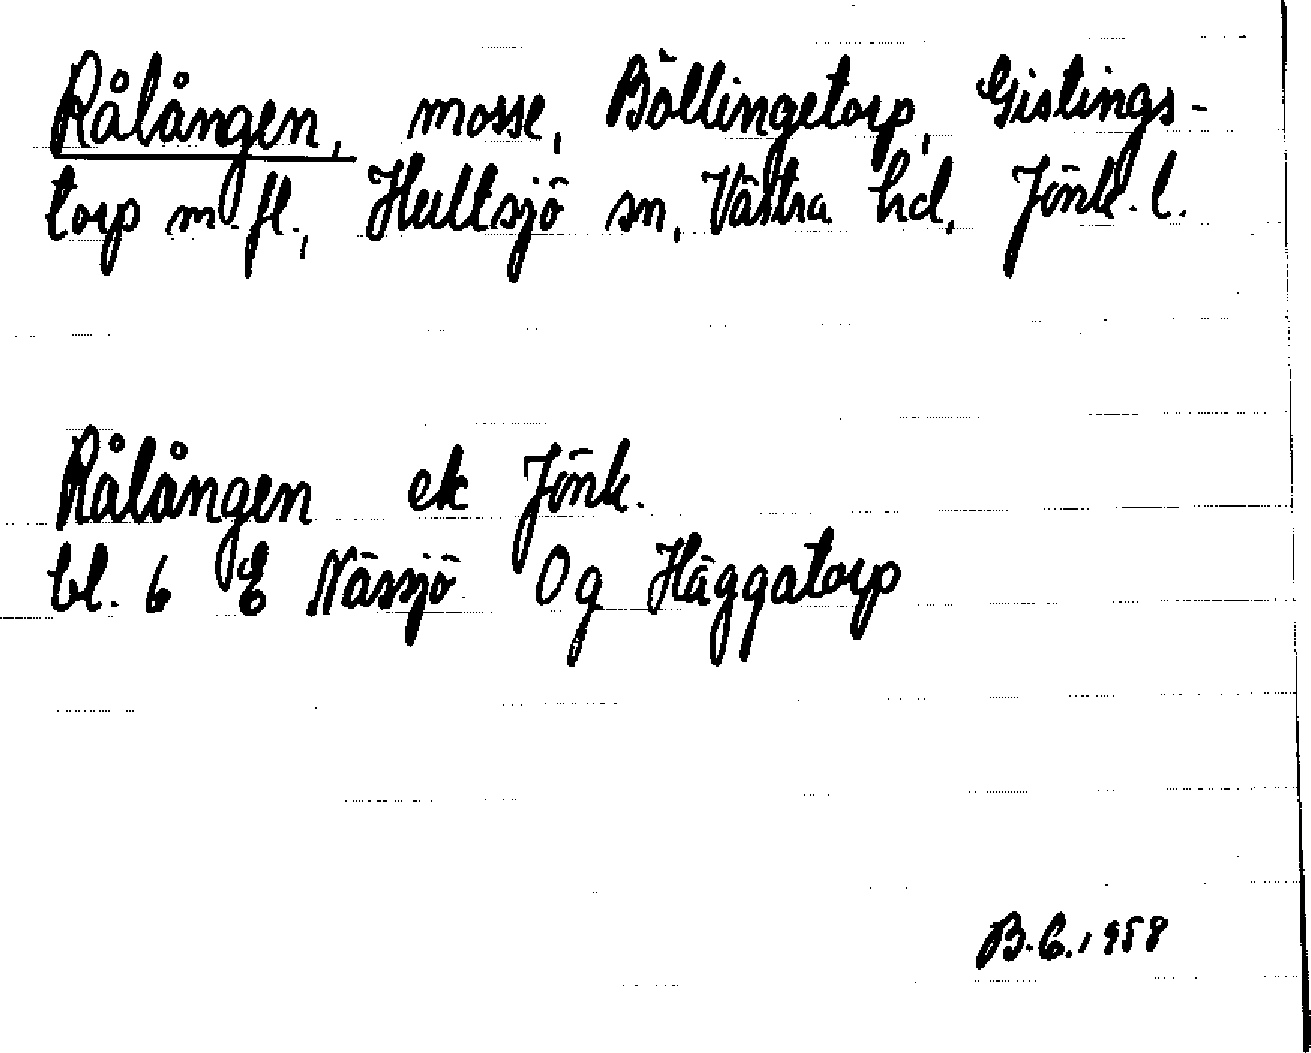 Rålången, mosse, Böllingetorp, Gistings-
torp m.fl., Hultsjö sn, Västra hd, Jönk. l.
Rålången ek Jönk.
bl. 6 E Nässjö Og Häggatorp
B.E. 1958